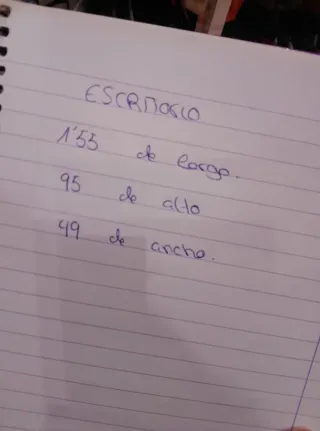 ESCRITORIO
1'55 de largo.
95 de alto
49 de ancho.